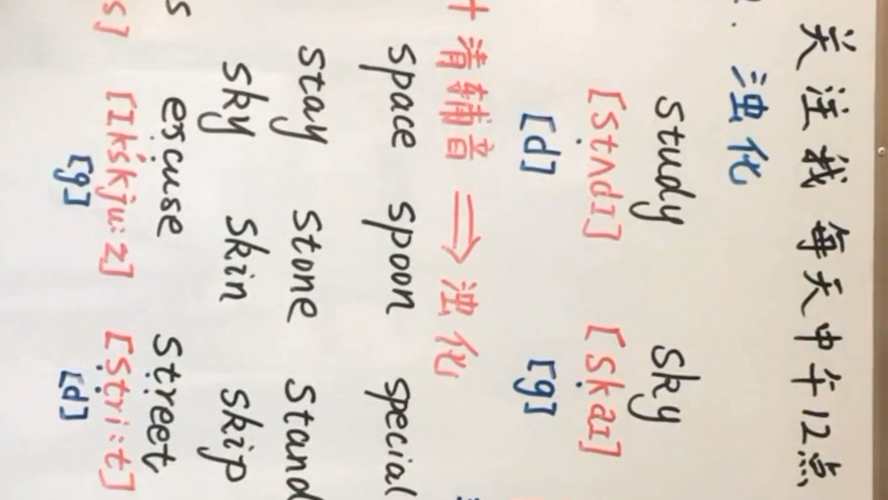 关注我 每天中午12点
. 浊化
study sky
[stʌdɪ] [skaɪ]
[d] [g]
+清辅音 ⇒ 浊化
space spoon special
stay stone stand
sky skin skip
s excuse street
s] [Ikskju:z] [stri:t]
[g] [d]